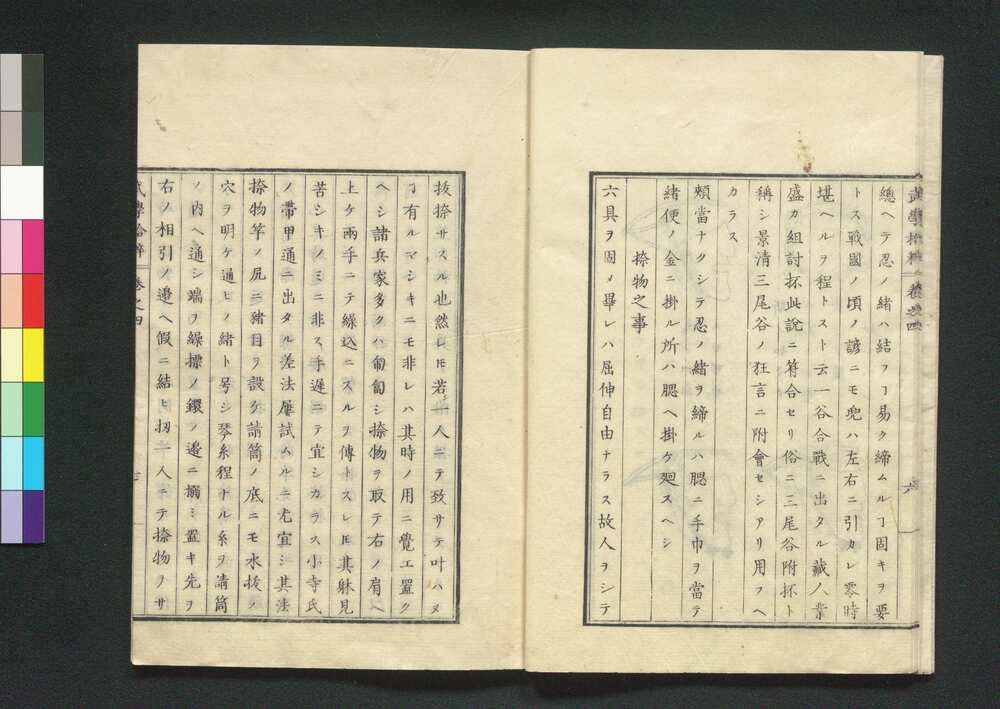 武學拾粹 卷之四 六
總ヘテ忍ノ緒ハ結フヿ易ク締ムルヿ固キヲ要
トス戰國ノ頃ノ諺ニモ兜ハ左右ニ引カレ零時
堪ヘルヲ程トスト云一谷合戰ニ出タル藏人業
盛カ組討抔此說ニ符合セリ俗ニ三尾谷附抔ト
稱シ景清三尾谷ノ狂言ニ附會セシアリ用フヘ
カラス
頰當ナクシテ忍ノ緒ヲ締ルハ腮ニ手巾ヲ當テ
緒便ノ金ニ掛ル所ハ腮ヘ掛ケ廻スヘシ
捺物之事
六具ヲ固メ畢レハ屈伸自由ナラス故人ヲシテ
拔捺サスル也然レ𪜈若シ一人ニテ致サテ叶ハヌ
ヿ有ルマシキニモ非レハ其時ノ用ニ覺エ置ク
ヘシ諸兵家多クハ匍匐シ捺物ヲ取テ右ノ肩ヘ
上ケ兩手ニテ繰込ニスルヲ傳トスレ𪜈其躰見
苦シキノミニ非ス手遲ニテ宜シカラス小寺氏
ノ帶甲通ニ出タル差法屢試ムルニ尤宜シ其法
捺物竿ノ尻ニ猪目ヲ設ケ請筒ノ底ニモ水拔ノ
穴ヲ明ケ通ヒノ緒ト号シ琴糸程ナル糸ヲ請筒
ノ内ヘ通シ端ヲ繰摽ノ鐶ノ邉ニ搦ミ置キ先ヲ
右ノ相引ノ邉ヘ假ニ結ヒ扨一人ニテ捺物ヲサ
武學拾粹 卷之四 七